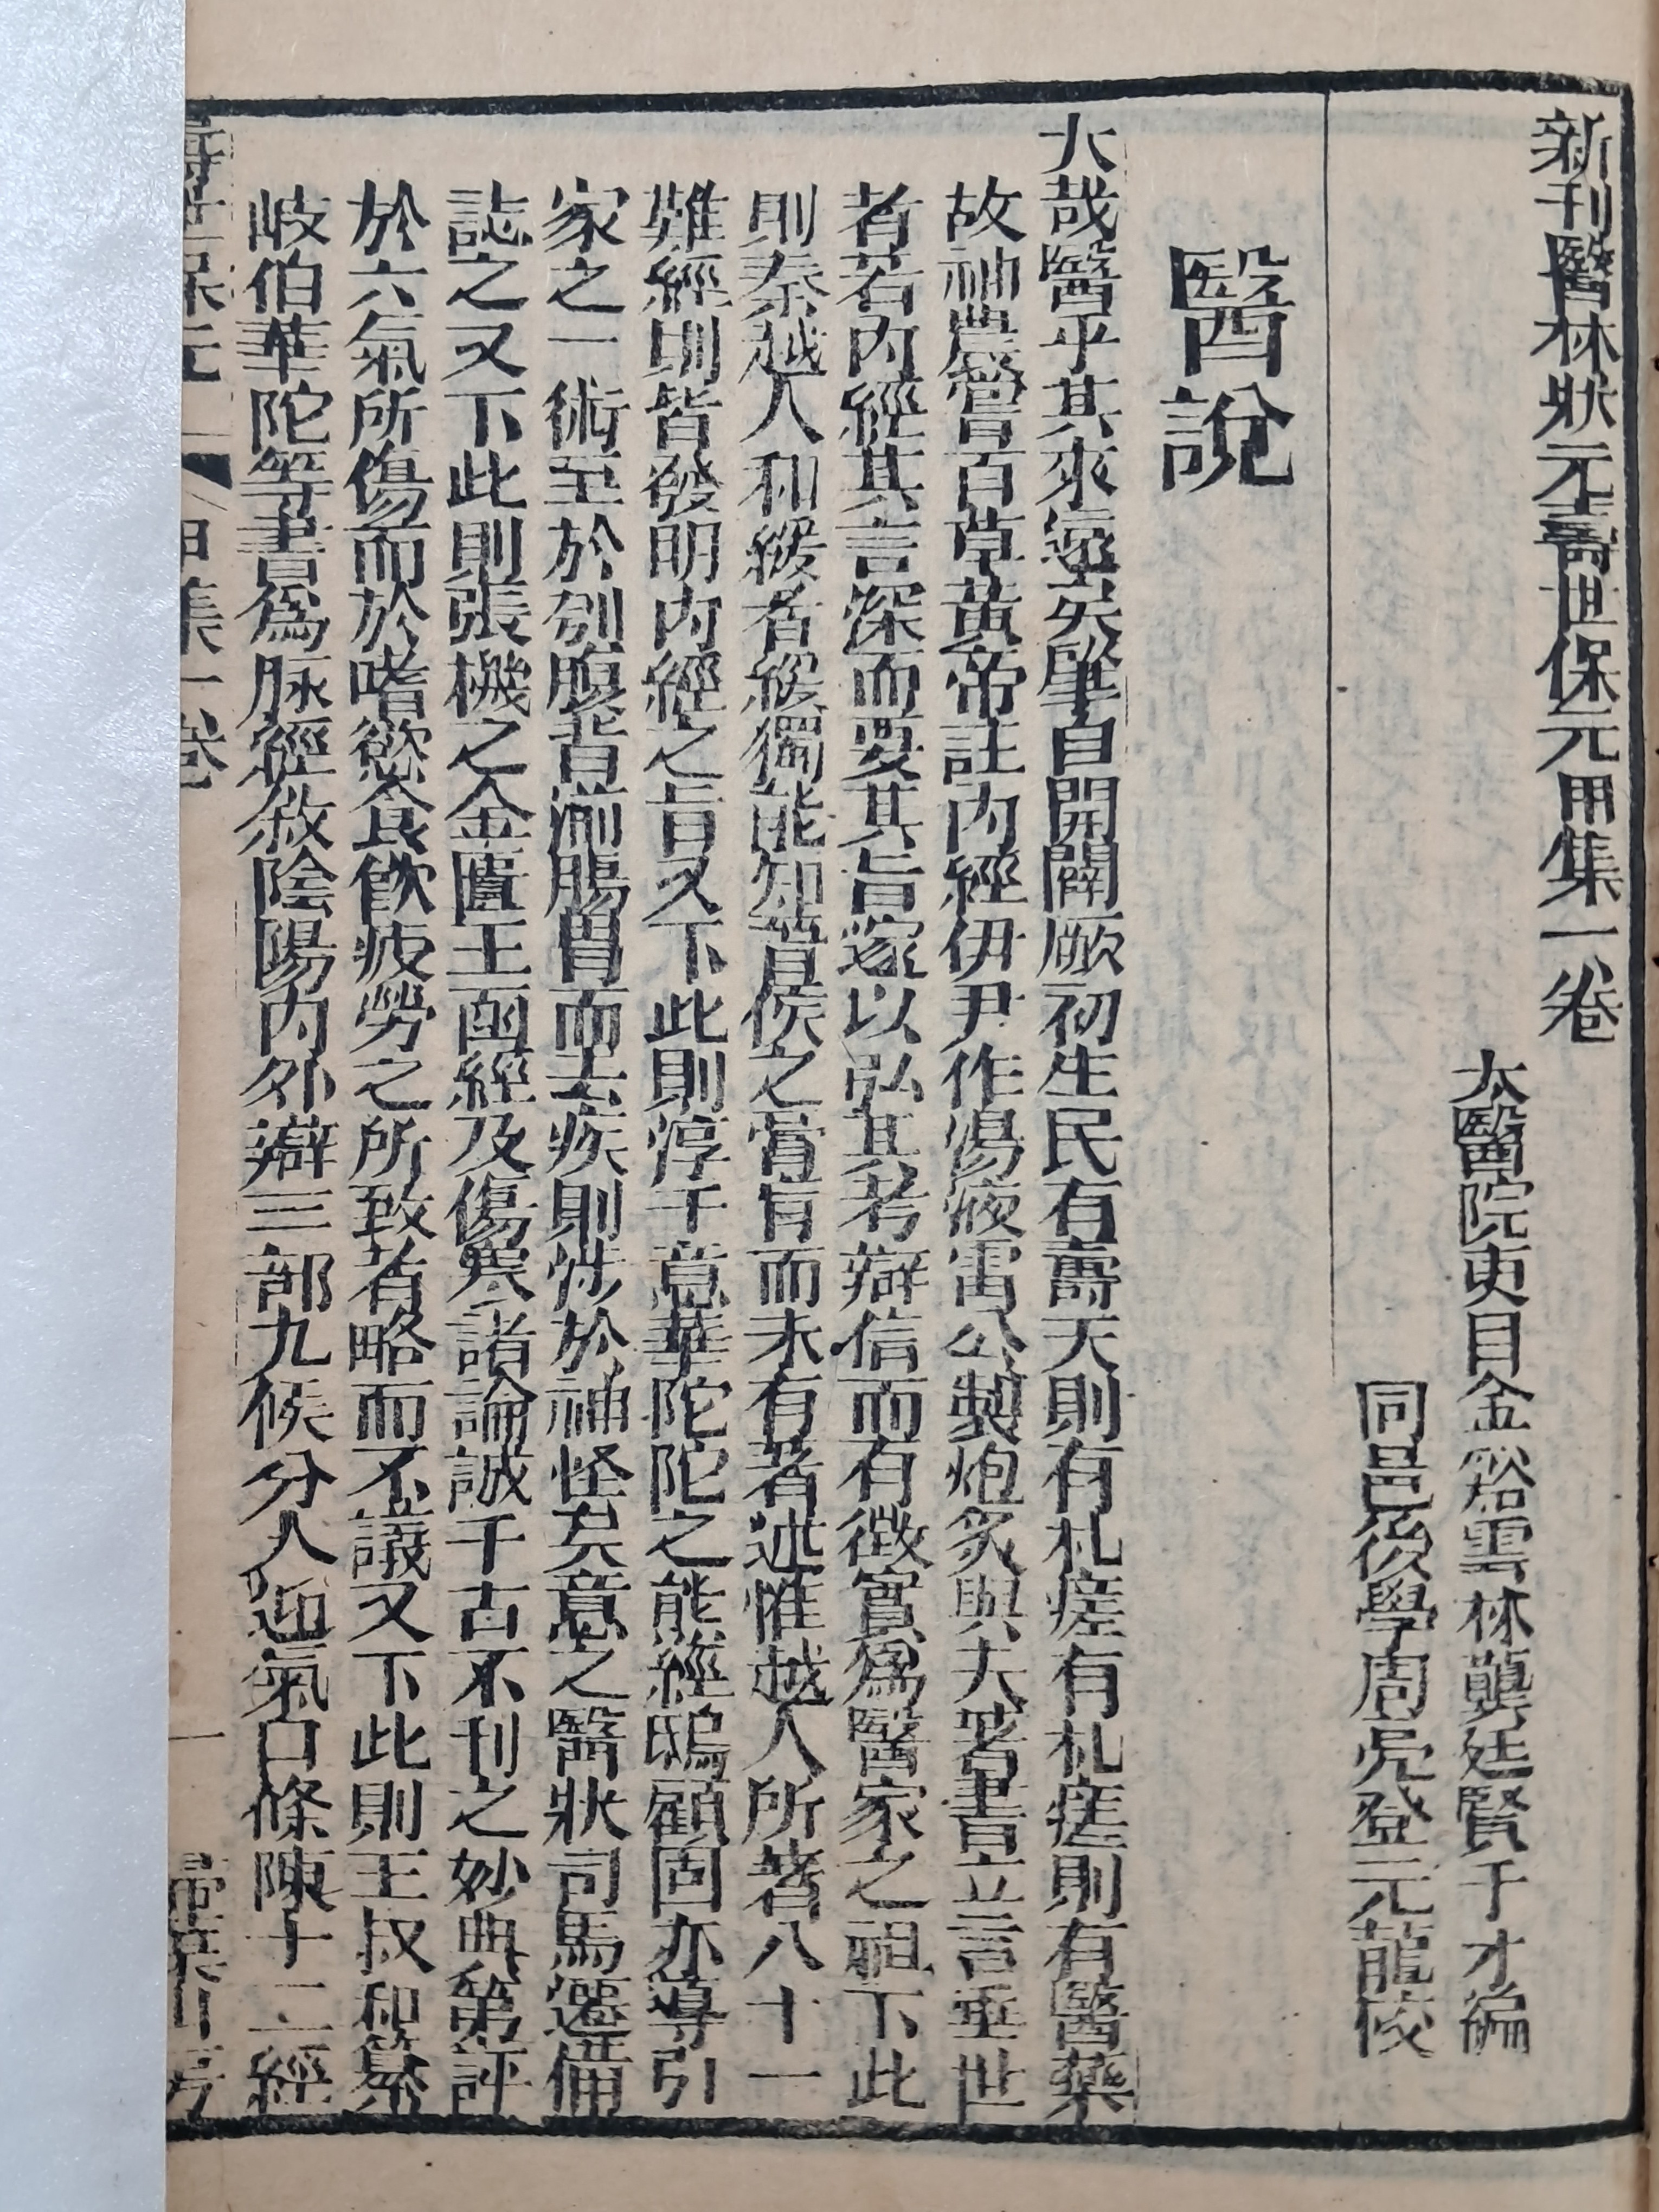 新刊醫林狀元壽世保元甲集一卷
太醫院吏目金谿雲林龔廷賢子才編
同邑後學周亮登元龍校
醫說
大哉醫乎其來遠矣肇自開闢厥初生民有壽夭則有札瘥有札瘥則有醫藥
故神農嘗百草黃帝註內經伊尹作湯液雷公製炮炙與夫著書立言垂世
者若內經其言深而要其旨邃以弘其考辯信而有徵實爲醫家之祖下此
則秦越人和緩者緩獨能知晉侯之膏肓而未有著述惟越人所著八十一
難經則皆發明內經之旨又下此則淳于意華陀陀之熊經鴟顧固亦導引
家之一術至於刳腹背湔腸胃而去疾則涉於神怪矣意之醫狀司馬遷備
誌之又下此則張機之金匱玉函經及傷寒諸論誠千古不刊之妙典第詳
於六氣所傷而於嗜慾食飲疲勞之所致者略而不議又下此則王叔和纂
岐伯華陀等書爲脉經敘陰陽內外辯三部九候分人迎氣口條陳十二經
壽世保元 甲集一卷 一